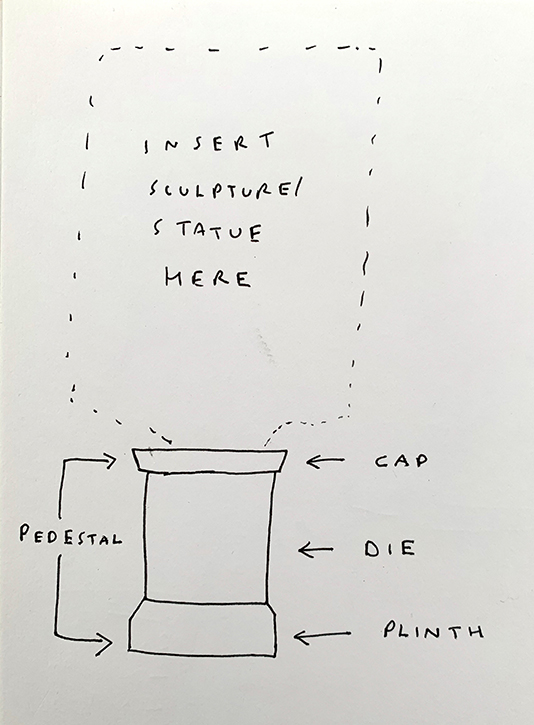 INSERT
SCULPTURE/
STATUE
HERE
CAP
PEDESTAL
DIE
PLINTH